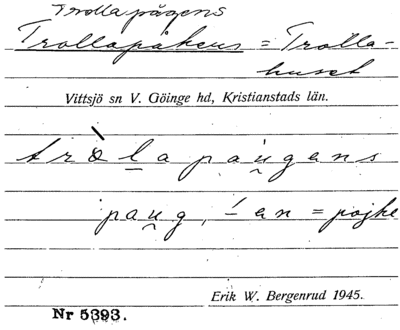 Trolla pågens
Trollapåkens = Trolla-
huset
Vittsjö sn V. Göinge hd, Kristianstads län.
tròl̲apau̯gens
pau̯g, -́en = pojke
Erik W. Bergenrud 1945.
Nr 5393.